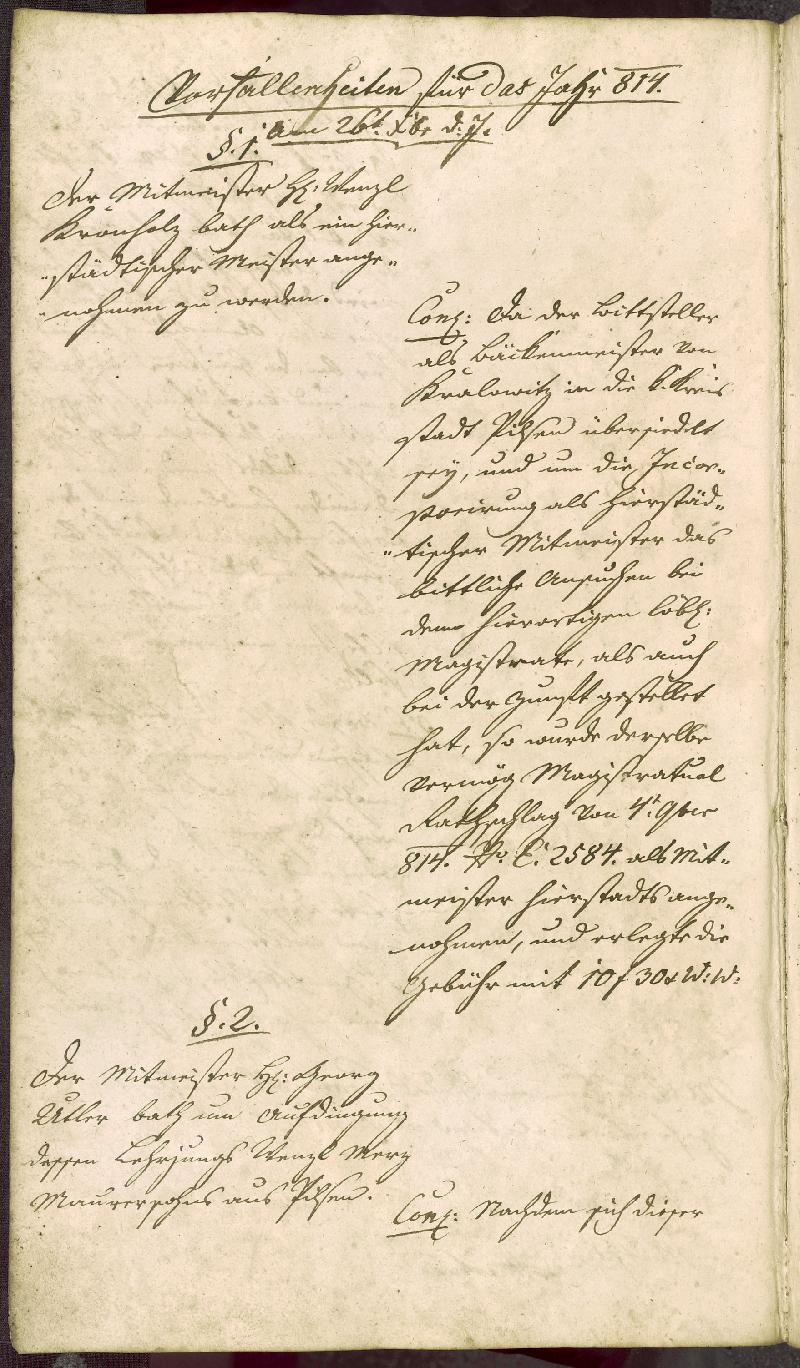 Vorfallenheiten für das Jahr 814.
§. 1. am 26t Xbr d: J.
Der Mitmeister H: Wenzl
Kronholz bath als ein hier„
„städtischer Meister ange„
„nohmen zu werden.
Conz: Da der Bittsteller
als Bäckenmeister von
Kralowitz in die k. Kreis
stadt Pilsen übersiedelt
sey, und um die Incor„
porirung als hierstäd„
„tischer Mitmeister das
bittliche Ansuchen bei
dem hierortigen löbl:
Magistrate, als auch
bei der Zunft gestellet
hat, so wurde derselbe
vermög Magistratual
Rathschlag von 4t 9ber
814. No. E: 2584. als Mit„
meister hierstadts ange„
nohmen, und erlegte die
Gebühr mit 10 f 30 x W: W:
§. 2.
Der Mitmeister H: Georg
Utler bath um Aufdingung
dessen Lehrjungs Wenzl Merz
Maurersohns aus Pilsen.
Conz: Nachdem sich dieser